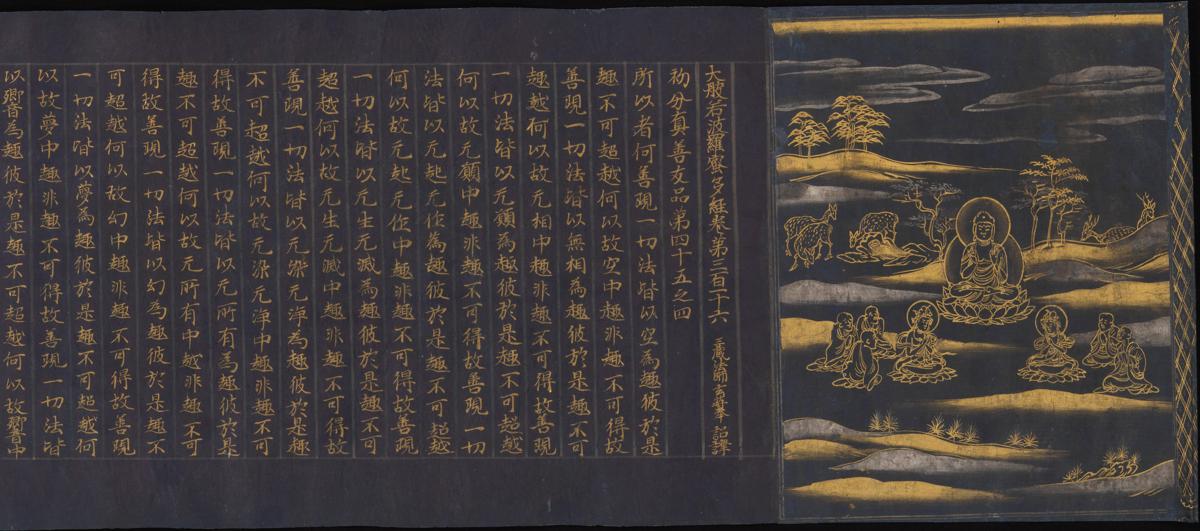 大般若波羅蜜多経巻第三百十六 三蔵法師玄奘奉 詔譯
初分真善友品第四十五之四
所以者何善現一切法皆以空為趣彼於是
趣不可超越何以故空中趣非趣不可得故
善現一切法皆以無相為趣彼於是趣不可
超越何以故无相中趣非趣不可得故善現
一切法皆以无願為趣彼於是趣不可超越
何以故无願中趣非趣不可得故善現一切
法皆以无起无作為趣彼於是趣不可超越
何以故无起无作中趣非趣不可得故善現
一切法皆以无生无滅為趣彼於是趣不可
超越何以故无生无滅中趣非趣不可得故
善現一切法皆以无染无淨為趣彼於是趣
不可超越何以故无染无淨中趣非趣不可
得故善現一切法皆以无所有為趣彼於是
趣不可超越何以故无所有中趣非趣不可
得故善現一切法皆以幻為趣彼於是趣不
可超越何以故幻中趣非趣不可得故善現
一切法皆以夢為趣彼於是趣不可超越何
以故夢中趣非趣不可得故善現一切法皆
以響為趣彼於是趣不可超越何以故響中